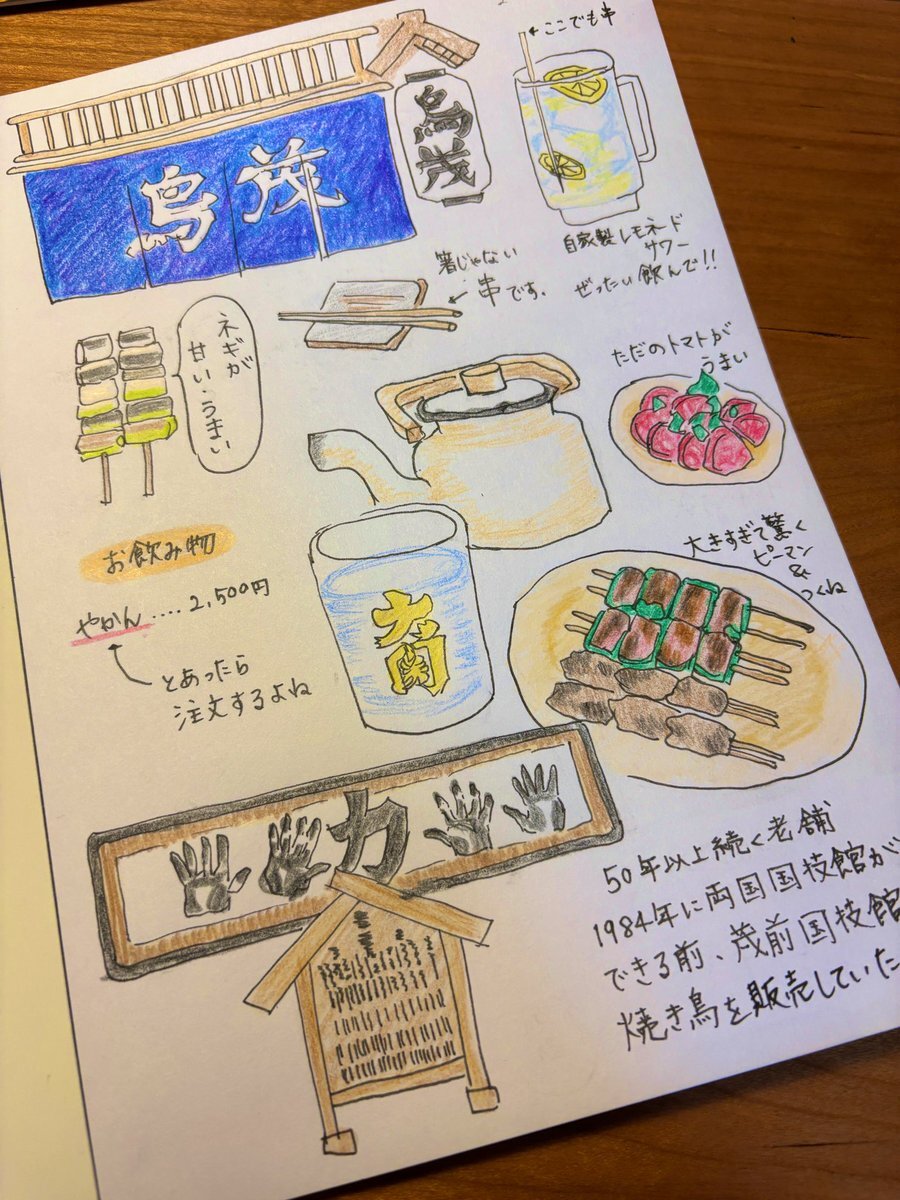 ←ここでも串
鳥茂
鳥茂
自家製レモネード
サワー
ぜったい飲んで!!
箸じゃない
←串です.
ネギが
甘い・うまい
ただのトマトが
うまい
お飲み物
やかん.....2,500円
とあったら
注文するよね
大関
大きすぎて驚く
ピーマン
&
つくね
力
50年以上続く老舗
1984年に両国国技館が
できる前、茂前国技館
焼き鳥を販売していた